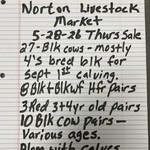 Norton Livestock
Market
5-28-26 Thurs Sale
27-Blk cows - mostly
4's bred blk for
Sept 1st calving.
8 Blk+Blkwf HF pairs
3 Red 3+4yr old pairs
10 Blk cow pairs -
Various ages.
with calves